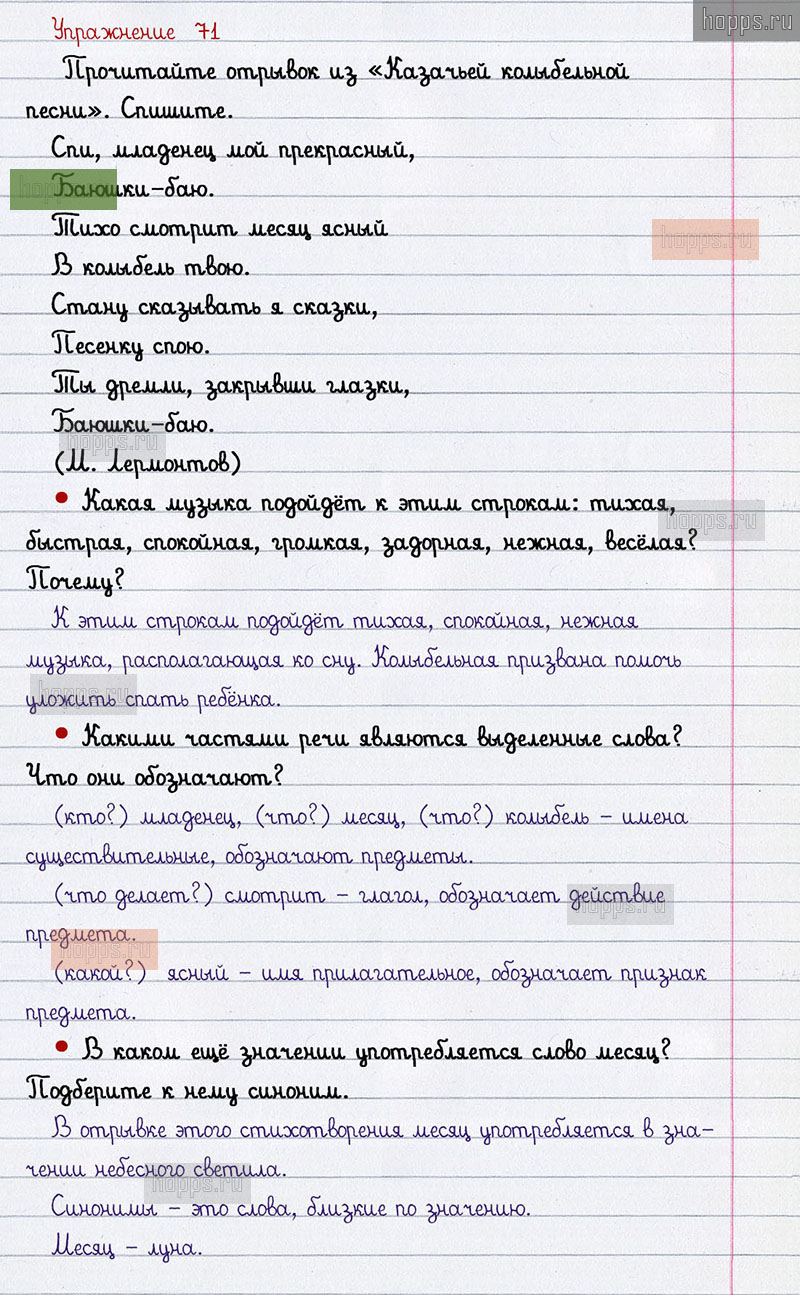 hopps.ru
Упражнение 71
Прочитайте отрывок из «Казачьей колыбельной
песни». Спишите.
Спи, младенец мой прекрасный,
Баюшки-баю.
hopps.ru
Тихо смотрит месяц ясный
hopps.ru
В колыбель твою.
Стану сказывать я сказки,
Песенку спою.
Ты дремли, закрывши глазки,
Баюшки-баю.
hopps.ru
(М. Лермонтов)
• Какая музыка подойдёт к этим строкам: тихая,
hopps.ru
быстрая, спокойная, громкая, задорная, нежная, весёлая?
Почему?
К этим строкам подойдёт тихая, спокойная, нежная
музыка, располагающая ко сну. Колыбельная призвана помочь
hopps.ru
уложить спать ребёнка.
• Какими частями речи являются выделенные слова?
Что они обозначают?
(кто?) младенец, (что?) месяц, (что?) колыбель – имена
существительные, обозначают предметы.
(что делает?) смотрит – глагол, обозначает действие
hopps.ru
предмета.
hopps.ru
(какой?) ясный – имя прилагательное, обозначает признак
предмета.
• В каком ещё значении употребляется слово месяц?
Подберите к нему синоним.
В отрывке этого стихотворения месяц употребляется в зна-
чении небесного светила.
hopps.ru
Синонимы – это слова, близкие по значению.
Месяц – луна.